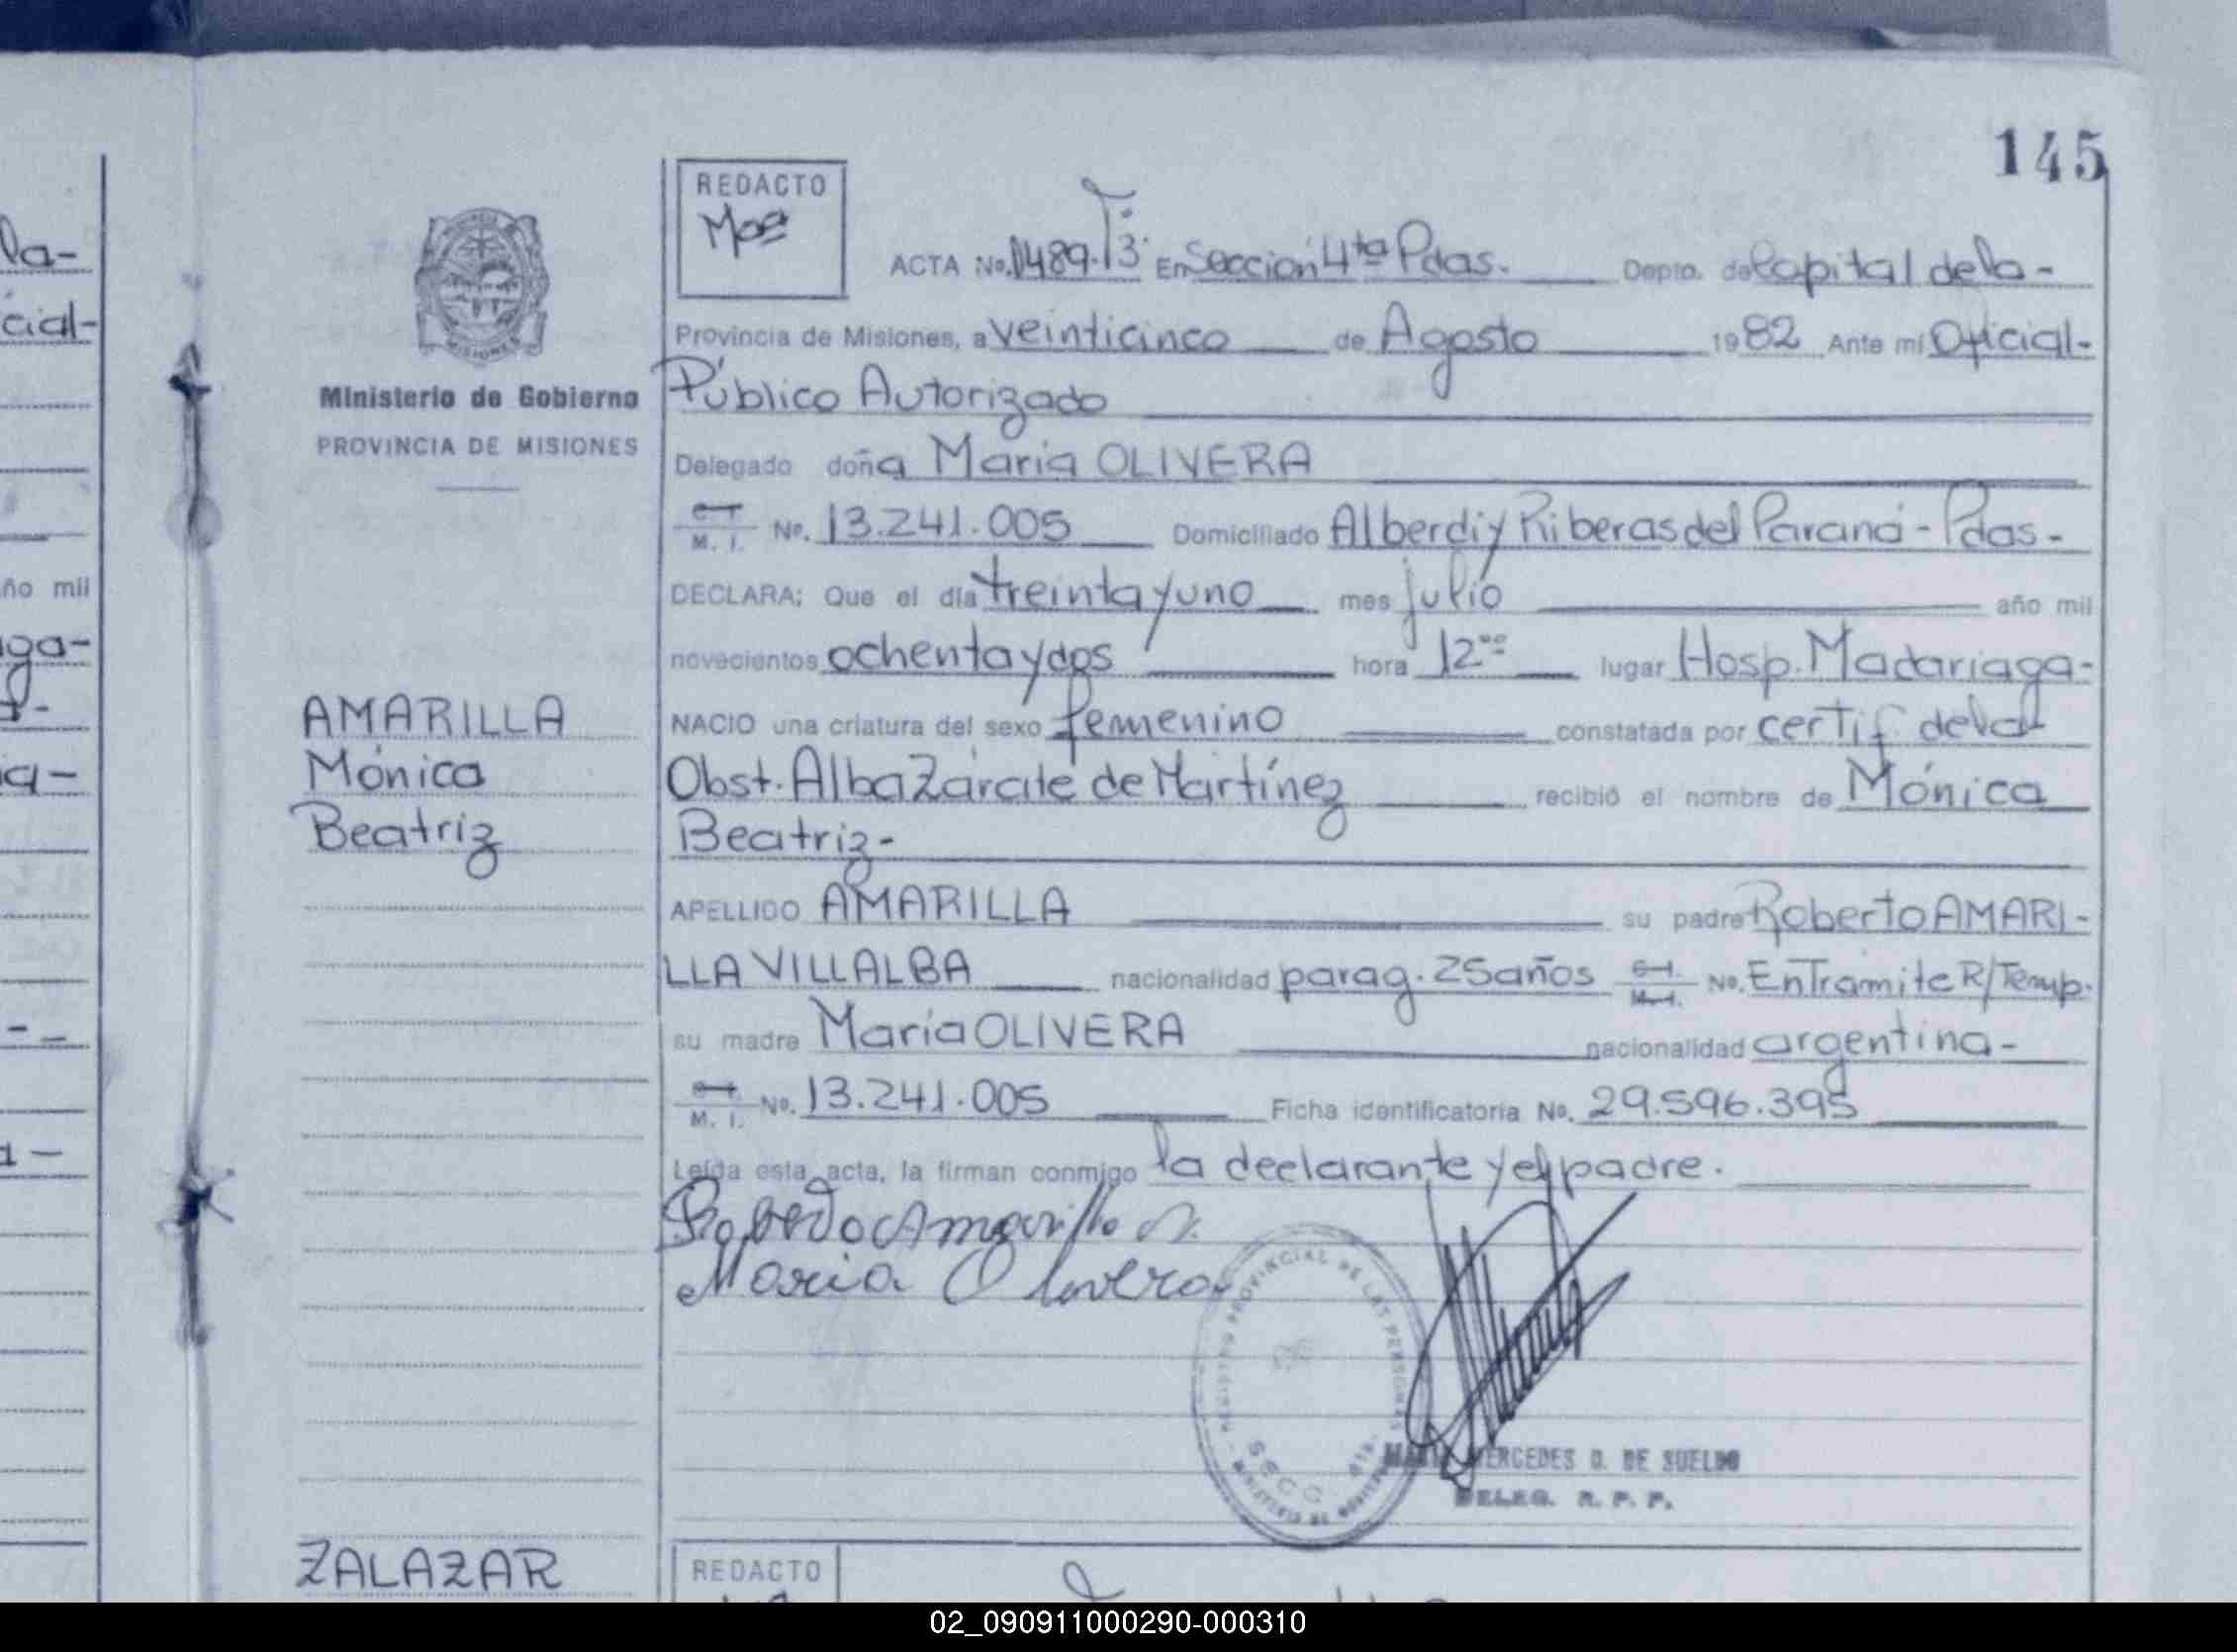 145
REDACTO
Moe
ACTA No. 1489. T3. En Sección 4ta Pdas. Depto. de Capital de la-
Provincia de Misiones, a veinticinco de Agosto 1982 Ante mí Oficial-
Público Autorizado
Delegado doña María OLIVERA
C. I.
M. I. No. 13.241.005 Domiciliado Alberdi y Riberas del Paraná - Pdas-
DECLARA: Que el día treinta y uno mes julio año mil
novecientos ochenta y dos hora 12°° lugar Hosp. Madariaga-
NACIO una criatura del sexo femenino constatada por certif. de la
Obst. Alba Zárate de Martínez recibió el nombre de Mónica
Beatriz-
APELLIDO AMARILLA su padre Roberto AMARI-
LLA VILLALBA nacionalidad parag. 25 años C. I. M. I. No. En Tramite R/Temp.
su madre María OLIVERA nacionalidad argentina-
M. I. No. 13.241.005 Ficha identificatoria No. 29.596.395
Leída esta acta, la firman conmigo la declarante y el padre.
Roberto Amarilla V.
Maria Olivera
REGISTRO PROVINCIAL DE LAS PERSONAS
MINISTERIO DE GOBIERNO
SECC
MARIA MERCEDES D. DE SUELDO
DELEG. R. P. P.
Ministerio de Gobierno
PROVINCIA DE MISIONES
MISIONES
AMARILLA
Mónica
Beatriz
ZALAZAR
REDACTO
la-
cial-
año mil
aga-
a-
02_090911000290-000310